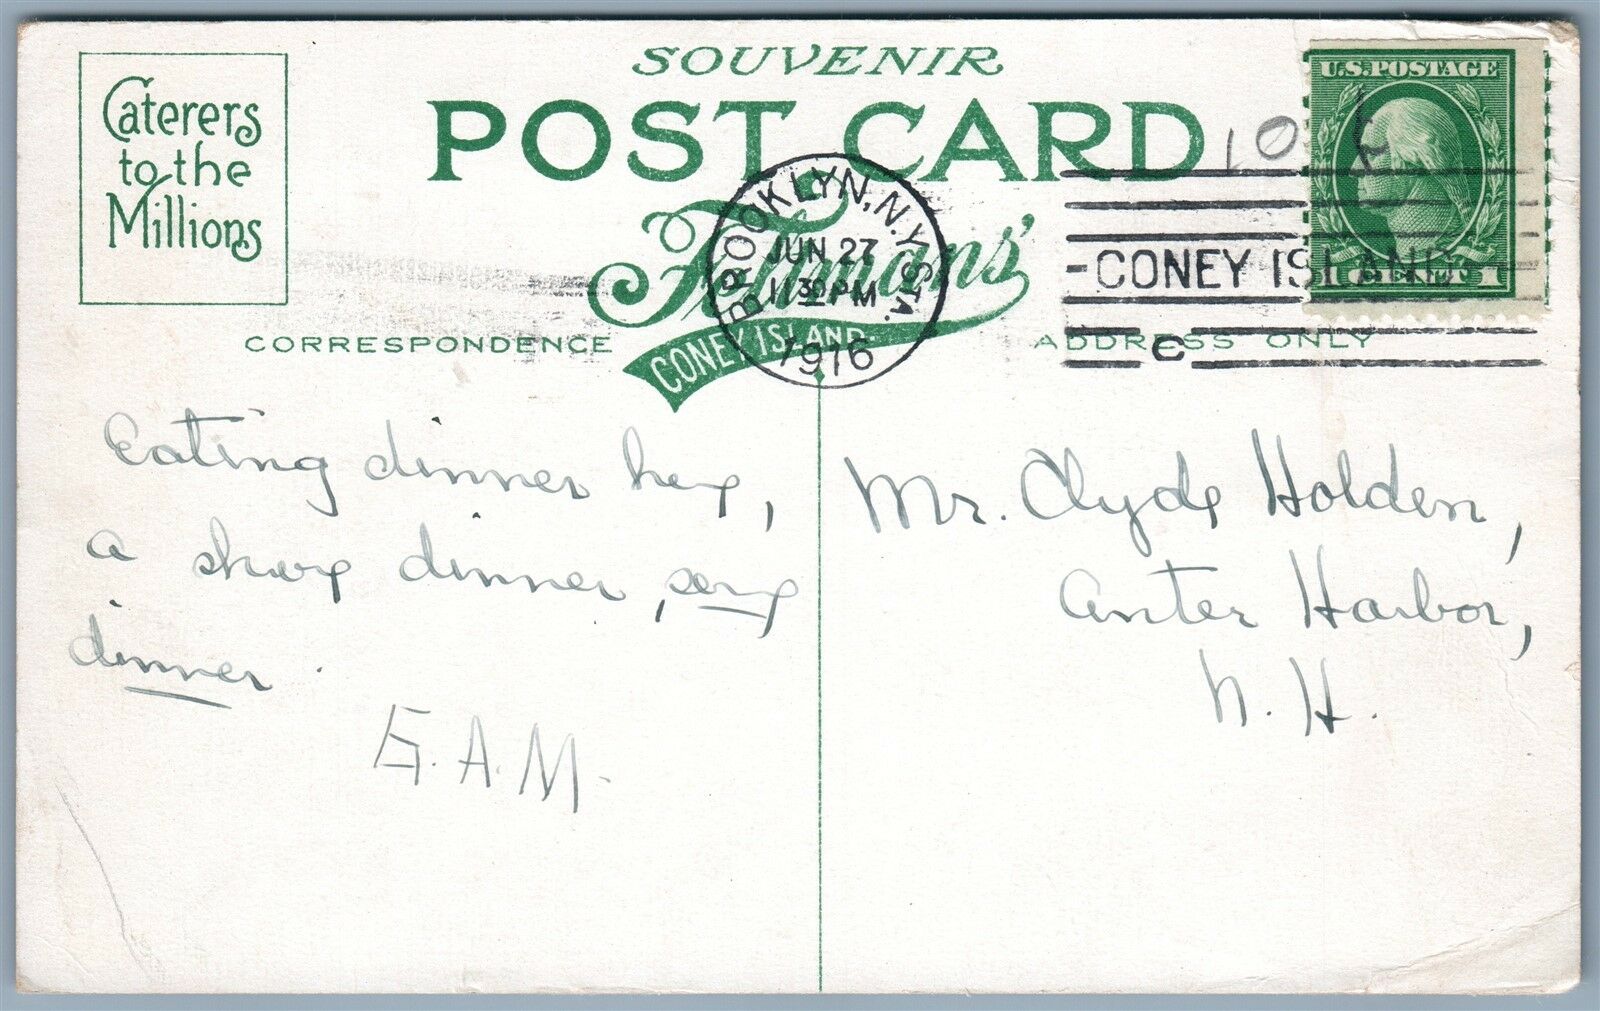 Caterers
to the
Millions
SOUVENIR
POST CARD
Feltmans'
CONEY ISLAND.
CORRESPONDENCE
ADDRESS ONLY
10
U.S. POSTAGE
1 CENT 1
BROOKLYN, N.Y. STA.
JUN 27
11 30 PM
1916
CONEY ISLAND
C
Eating dinner here,
a shore dinner, some
dinner.
G.A.M.
Mr. Clyde Holden,
Center Harbor,
N. H.